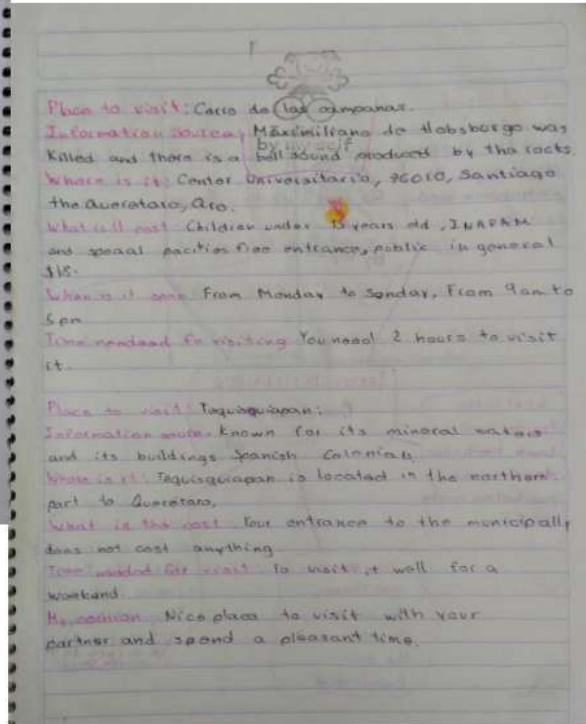 Place to visit: Carro de las campanas.
Information source: Maximiliano de Habsburgo was
by myself
killed and there is a bell sound produced by the rocks.
Where is it: Center Universitario, 76010, Santiago
the Queretaro, Qro.
What is it cost: Children under 13 years old, INAPAM
and free entrance, public in general
When is it open From Monday to Sonday, From 9am to
6pm
Time needed for visiting You need 2 hours to visit
it.
Place to visit: Tequisquiapan:
Information source. Known for its mineral waters
and its buildings Spanish Colonials
Where is it: Tequisquiapan is located in the northern
part to Queretaro,
What is the cost Your entrance to the municipally
does not cost anything
Time needed for visit To visit it well for a
weekend.
My opinion Nice place to visit with your
partner and spend a pleasant time.